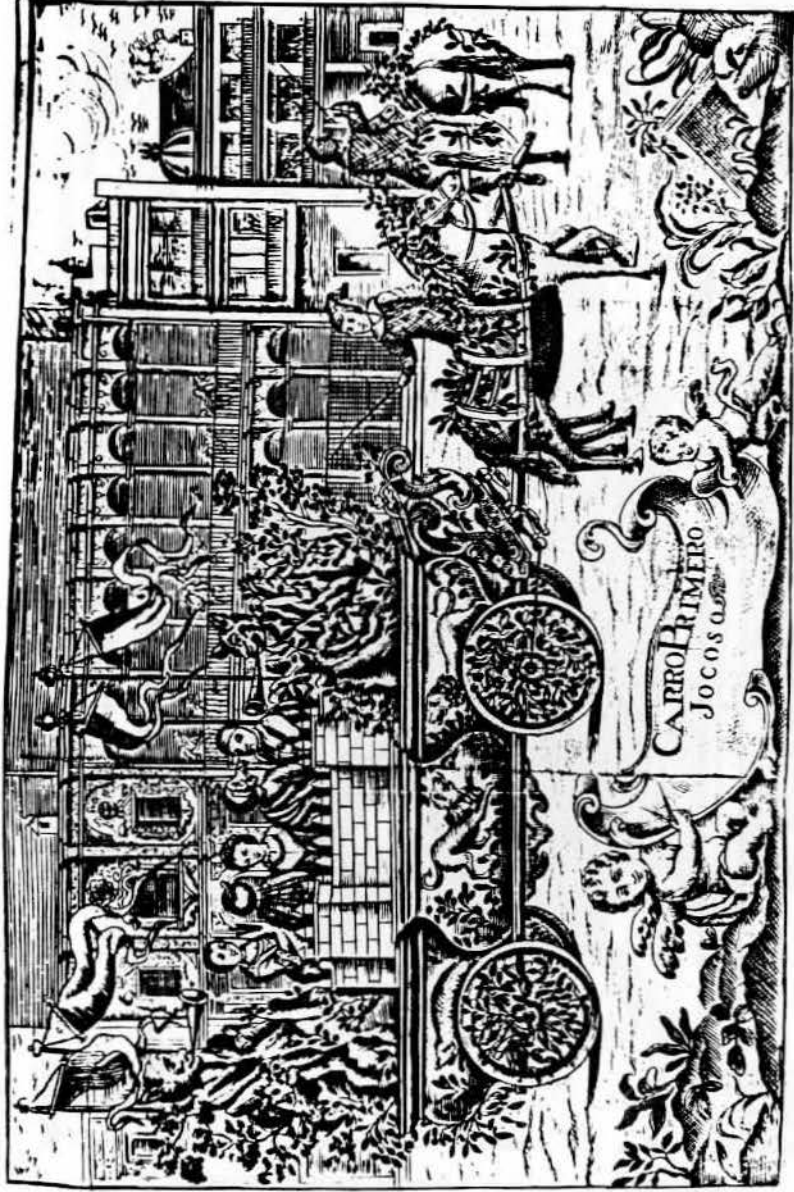 CARRO PRIMERO
JOCOSO